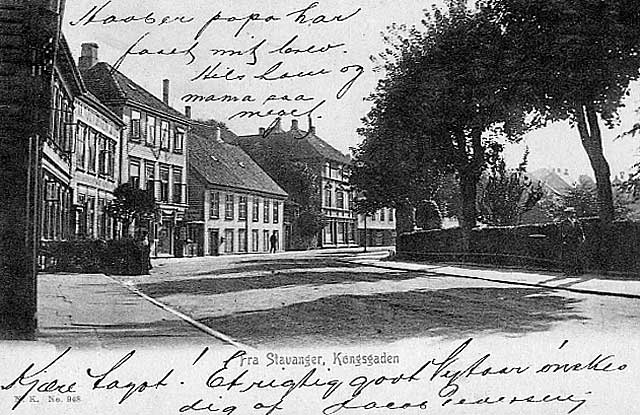 Haaber papa har
faaet mit brev.
Hils ham og
mama saa
meget
Fra Stavanger, Kongsgaden
Kjære Aagot! Et rigtig godt Nytaar ønskes
N. K. No. 948
dig af Jacob Pedersen